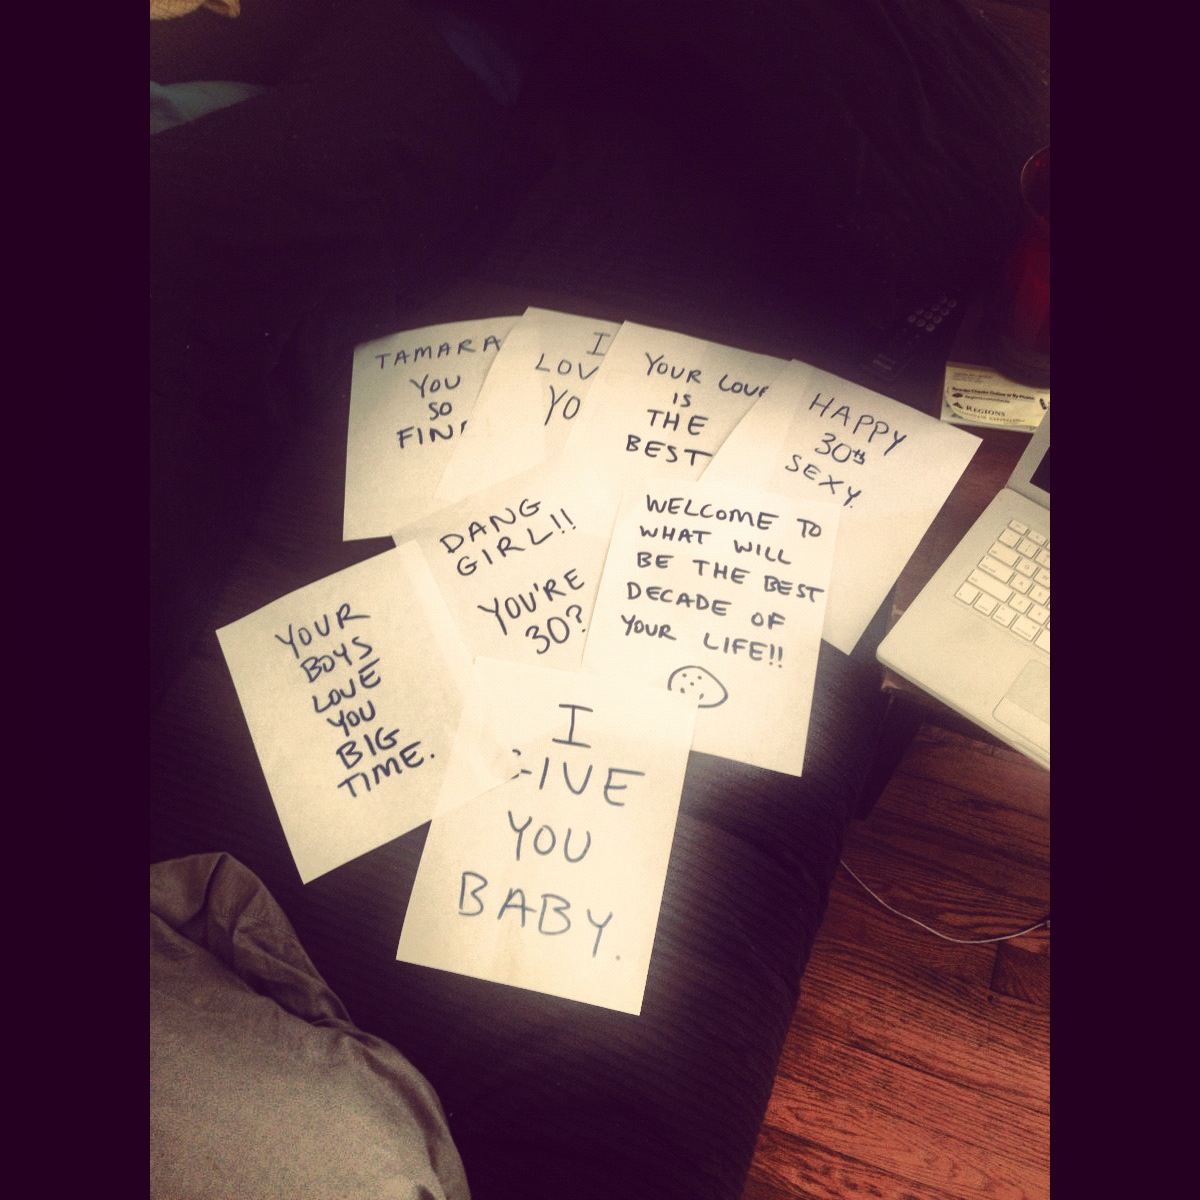 TAMARA
YOU
SO
I
YOUR LOVE
IS
THE
BEST
HAPPY
30th
SEXY.
DANG
GIRL!!
YOU'RE
30?
WELCOME TO
WHAT WILL
BE THE BEST
DECADE OF
YOUR LIFE!!
YOUR
BOYS
LOVE
YOU
BIG
TIME.
I
YOU
BABY.
REGIONS